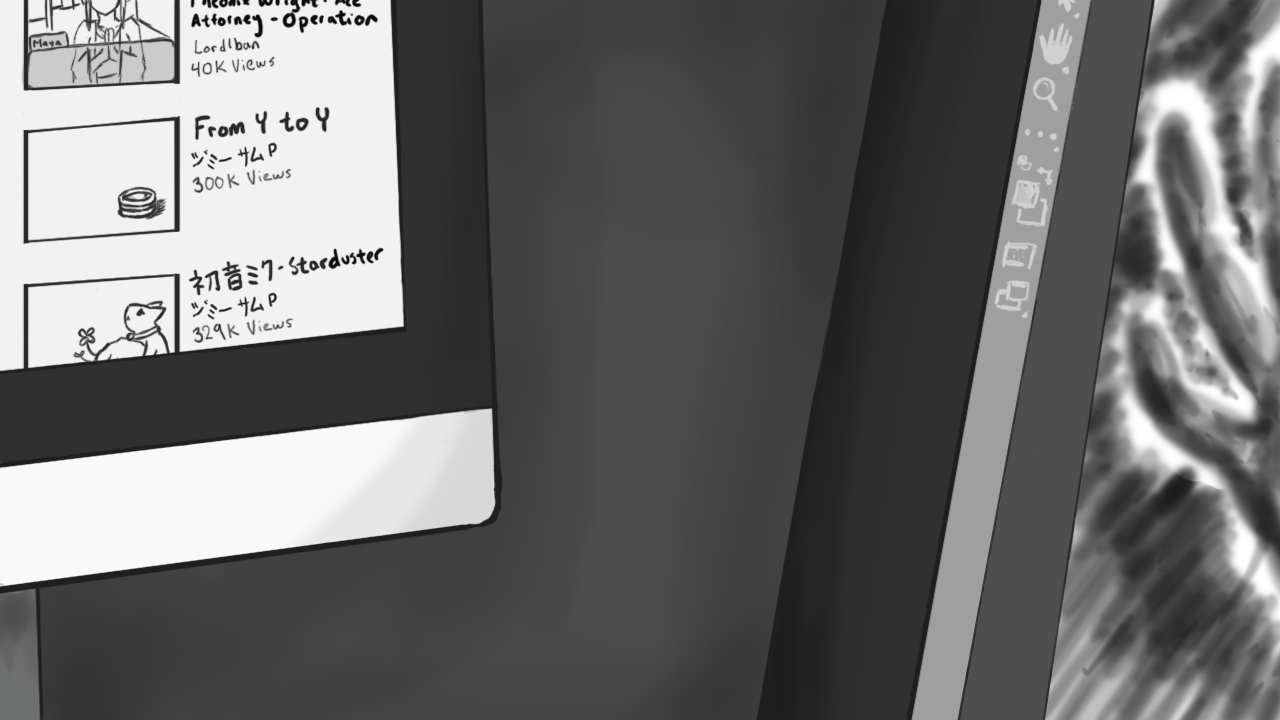 Phoenix Wright: Ace
Attorney - Operation
Lordlban
40K Views
Maya
From Y to Y
ジミーサムP
300K Views
初音ミク - Starduster
ジミーサムP
329K Views